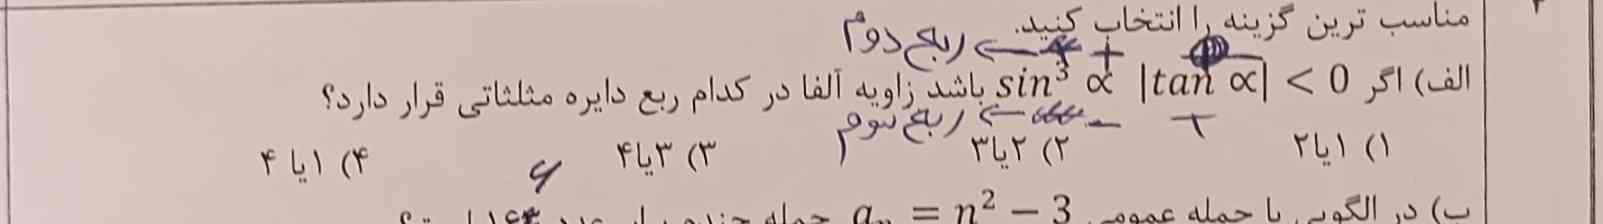 ۲
مناسب ترین گزینه را انتخاب کنید.
+ ← ربع دوم
الف) اگر sin³ ∝ |tan ∝| < 0 باشد زاویه آلفا در کدام ربع دایره مثلثاتی قرار دارد؟
+ − ← ربع سوم
۱) ۱یا۲ ۲) ۲یا۳ ۳) ۳یا۴ ۴) ۱یا ۴
ب) در الگویی با جمله عمومی aₙ = n² − 3 جمله چندم